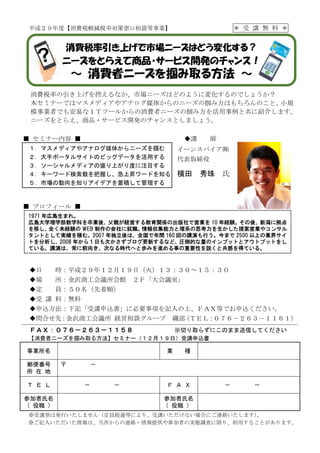 平成２９年度【消費税軽減税率対策窓口相談等事業】
＊ 受 講 無 料 ＊
消費税率引き上げで市場ニーズはどう変化する？
ニーズをとらえて商品・サービス開発のチャンス！
～ 消費者ニーズを掴み取る方法 ～
消費税率の引き上げを控えるなか、市場ニーズはどのように変化するのでしょうか？
本セミナーではマスメディアやアナログ媒体からのニーズの掴み方はもちろんのこと、小規
模事業者でも安易なＩＴツールからの消費者ニーズの掴み方を活用事例と共に紹介します。
ニーズをとらえ、商品・サービス開発のチャンスとしましょう。
■ セミナー内容 ■
１．マスメディアやアナログ媒体からニーズを掴む
２．大手ポータルサイトのビッグデータを活用する
３．ソーシャルメディアの盛り上がり度に注目する
４．キーワード検索数を把握し、急上昇ワードを知る
５．市場の動向を知りアイデアを蓄積して管理する
◆講　師
イーンスパイア㈱
代表取締役
横田　秀珠　氏
■ プロフィール ■
1971 年広島生まれ。
広島大学理学部数学科を卒業後、父親が経営する教育関係の出版社で営業を 10 年経験。その後、新潟に拠点
を移し、全く未経験の WEB 制作の会社に就職。情報収集能力と理系の思考力を生かした提案営業やコンサル
タントとして実績を積む。2007 年独立後は、全国で年間 160 回の講演も行う。今まで 2500 以上の業界サイ
トを分析し、2008 年から１日も欠かさずブログ更新するなど、圧倒的な量のインプットとアウトプットをし
ている。講演は、常に前向き、次なる時代へと歩みを進める事の重要性を説くと共感を得ている。
◆日　　時：平成２９年１２月１９日（火）１３：３０～１５：３０
◆場　　所：金沢商工会議所会館　２Ｆ「大会議室」
◆定　　員：５０名（先着順）
◆受 講 料：無料
◆申込方法：下記「受講申込書」に必要事項を記入の上、ＦＡＸ等でお申込ください。
◆問合せ先：金沢商工会議所 経営相談グループ　織部（ＴＥＬ：０７６－２６３－１１６１）
ＦＡＸ：０７６－２６３－１１５８　※切り取らずにこのまま送信してください
【消費者ニーズを掴み取る方法】セミナー（１２月１９日）受講申込書
事業所名　業　種
郵便番号　〒　－
所 在 地
Ｔ Ｅ Ｌ　－　－　Ｆ Ａ Ｘ　－　－
参加者氏名　参加者氏名
（ 役職 ）　（ 役職 ）
※受講票は発行いたしません（定員超過等により、受講いただけない場合にご連絡いたします）。
※ご記入いただいた情報は、当所からの連絡・情報提供や参加者の実態調査に限り、利用することがあります。